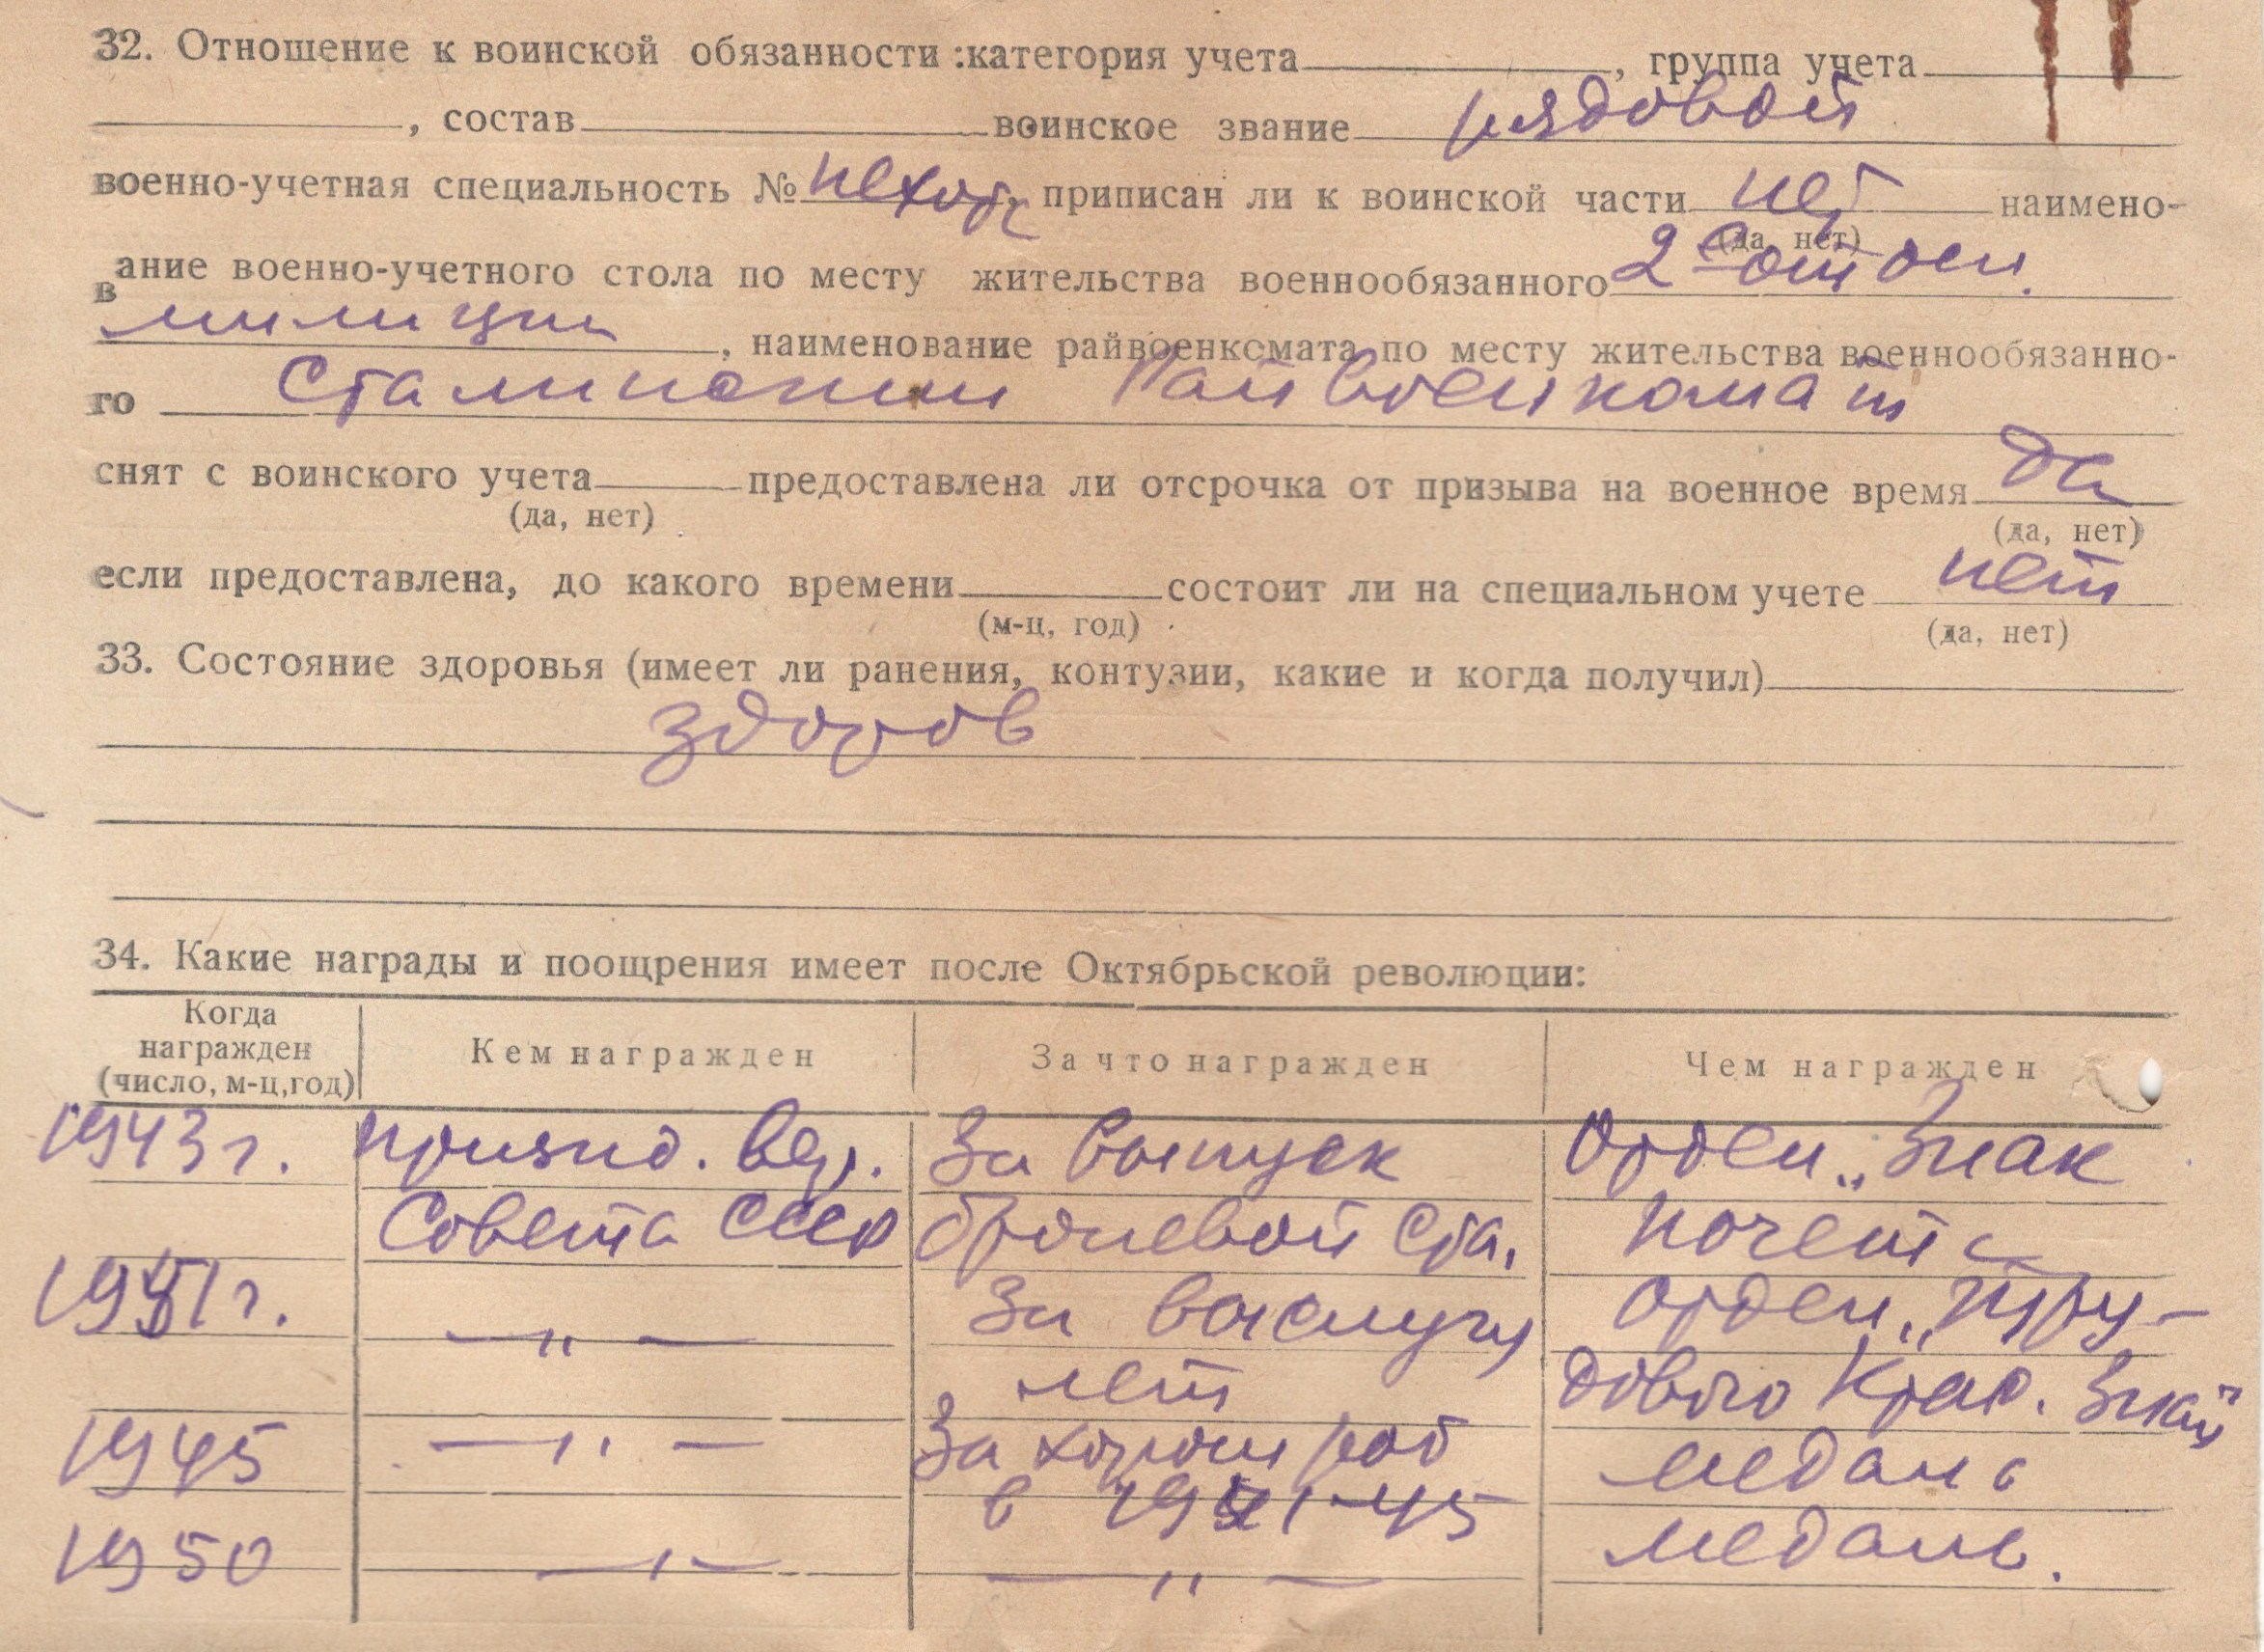 32. Отношение к воинской обязанности: категория учета , группа учета
, состав воинское звание рядовой
военно-учетная специальность № пехота, приписан ли к воинской части нет наимено-
(да, нет)
вание военно-учетного стола по месту жительства военнообязанного 2 е отден.
милиции , наименование райвоенкомата по месту жительства военнообязанно-
го Сталинский Райвоенкомат
снят с воинского учета предоставлена ли отсрочка от призыва на военное время да
(да, нет) (да, нет)
если предоставлена, до какого времени состоит ли на специальном учете нет
(м-ц, год) (да, нет)
33. Состояние здоровья (имеет ли ранения, контузии, какие и когда получил)
здоров
34. Какие награды и поощрения имеет после Октябрьской революции:
Когда награжден (число, м-ц, год) Кем награжден За что награжден Чем награжден
1943 г. Верх. За выпуск Орден „Знак
Совета СССР броневой ста. почета
1951 г. — „ — За выслугу орден „Тру-
лет дового Крас. Знам"
1945 — „ — За хорош раб медаль
в 1941-45
1950 — „ — — „ — медаль.